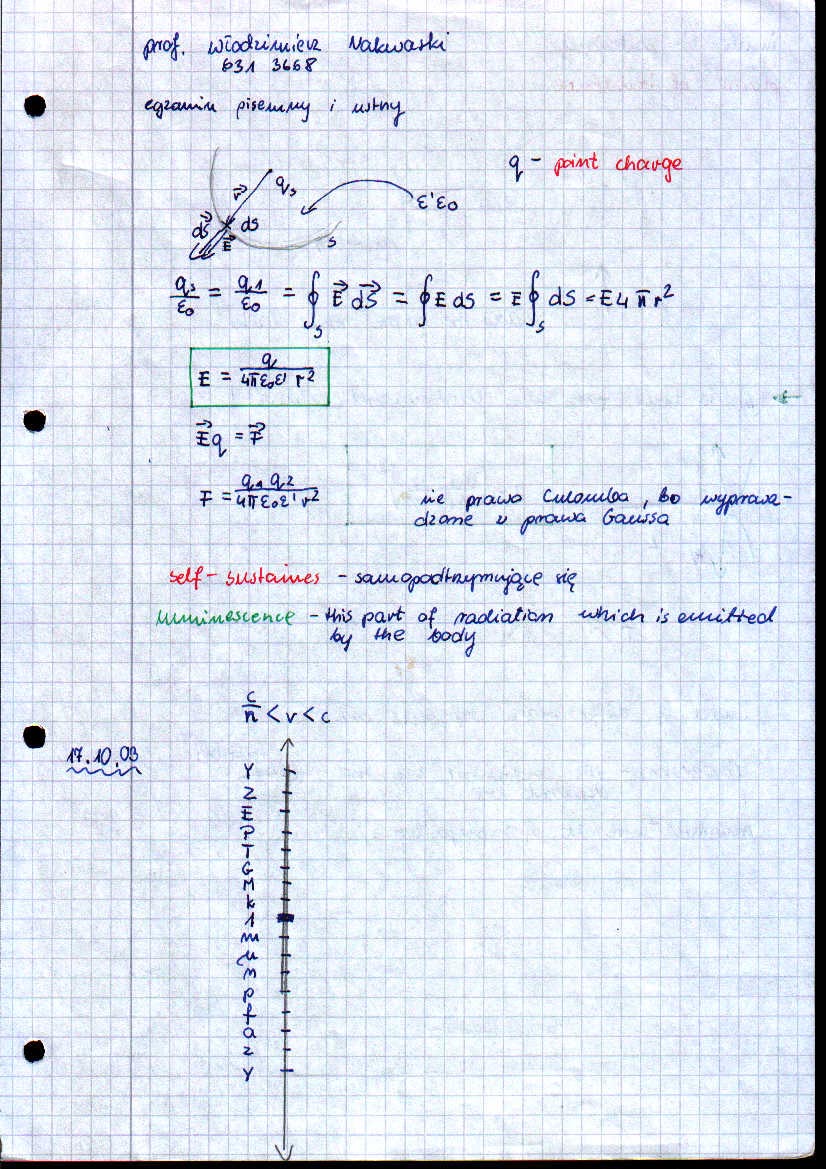 prof. Włodzimierz Nakwaski
631 3668
egzamin pisemny i ustny
q - point charge
r⃗ q_s
ε'ε₀
dS⃗ dS
E⃗ s
q_s/ε₀ = q_1/ε₀ = ∮_S E⃗ dS⃗ = ∮ E dS = E ∮_S dS = E 4 π r²
E = q/(4πε₀ε' r²)
E⃗q = F⃗
F = q₁ q₂/(4πε₀ε' r²)
nie prawo Culomba, bo wyprowa-
dzone z prawa Gaussa
self-sustaines - samopodtrzymujące się
luminescence - this part of radiation which is emitted
by the body
c/n < v < c
17.10.03
Y
Z
E
P
T
G
M
k
1
m
μ
n
p
f
a
z
y